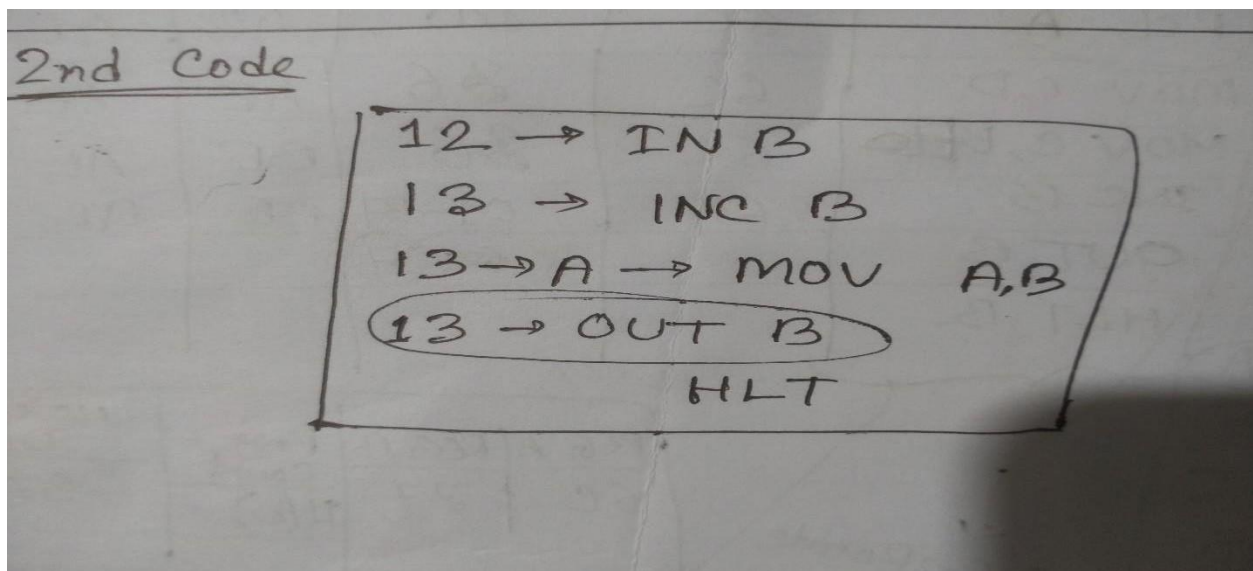 2nd Code
12 → IN B
13 → INC B
13 → A → MOV A,B
13 → OUT B
HLT